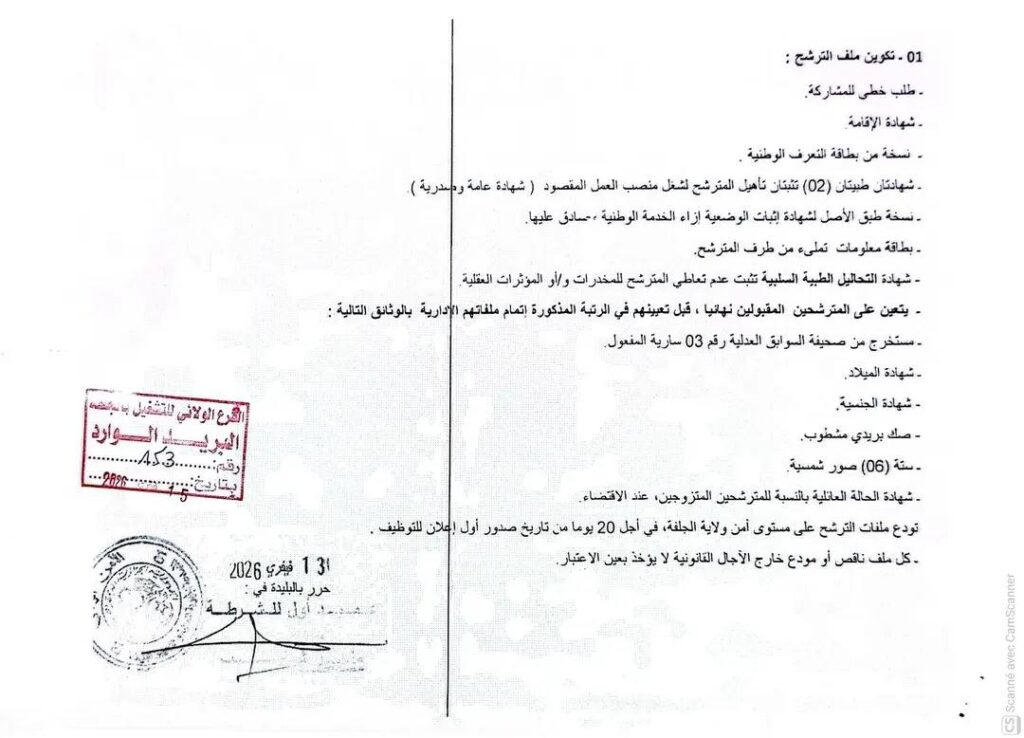 01 - تكوين ملف الترشح :
- طلب خطي للمشاركة.
- شهادة الإقامة.
- نسخة من بطاقة التعرف الوطنية .
- شهادتان طبيتان (02) تثبتان تأهيل المترشح لشغل منصب العمل المقصود ( شهادة عامة وصدرية ).
- نسخة طبق الأصل لشهادة إثبات الوضعية إزاء الخدمة الوطنية مصادق عليها.
- بطاقة معلومات تملىء من طرف المترشح.
- شهادة التحاليل الطبية السلبية تثبت عدم تعاطي المترشح للمخدرات و/أو المؤثرات العقلية.
- يتعين على المترشحين المقبولين نهائيا ، قبل تعيينهم في الرتبة المذكورة إتمام ملفاتهم الادارية بالوثائق التالية :
- مستخرج من صحيفة السوابق العدلية رقم 03 سارية المفعول.
- شهادة الميلاد.
- شهادة الجنسية.
- صك بريدي مشطوب.
- ستة (06) صور شمسية.
- شهادة الحالة العائلية بالنسبة للمترشحين المتزوجين، عند الاقتضاء.
تودع ملفات الترشح على مستوى أمن ولاية الجلفة، في أجل 20 يوما من تاريخ صدور أول إعلان للتوظيف .
- كل ملف ناقص أو مودع خارج الآجال القانونية لا يؤخذ بعين الاعتبار.
الفرع الولائي للتشغيل
البريد الوارد
رقم: 153
بتاريخ: 15 2026
13 فيفري 2026
حرر بالبليدة في :
أول للشرطة
CS Scanné avec CamScanner